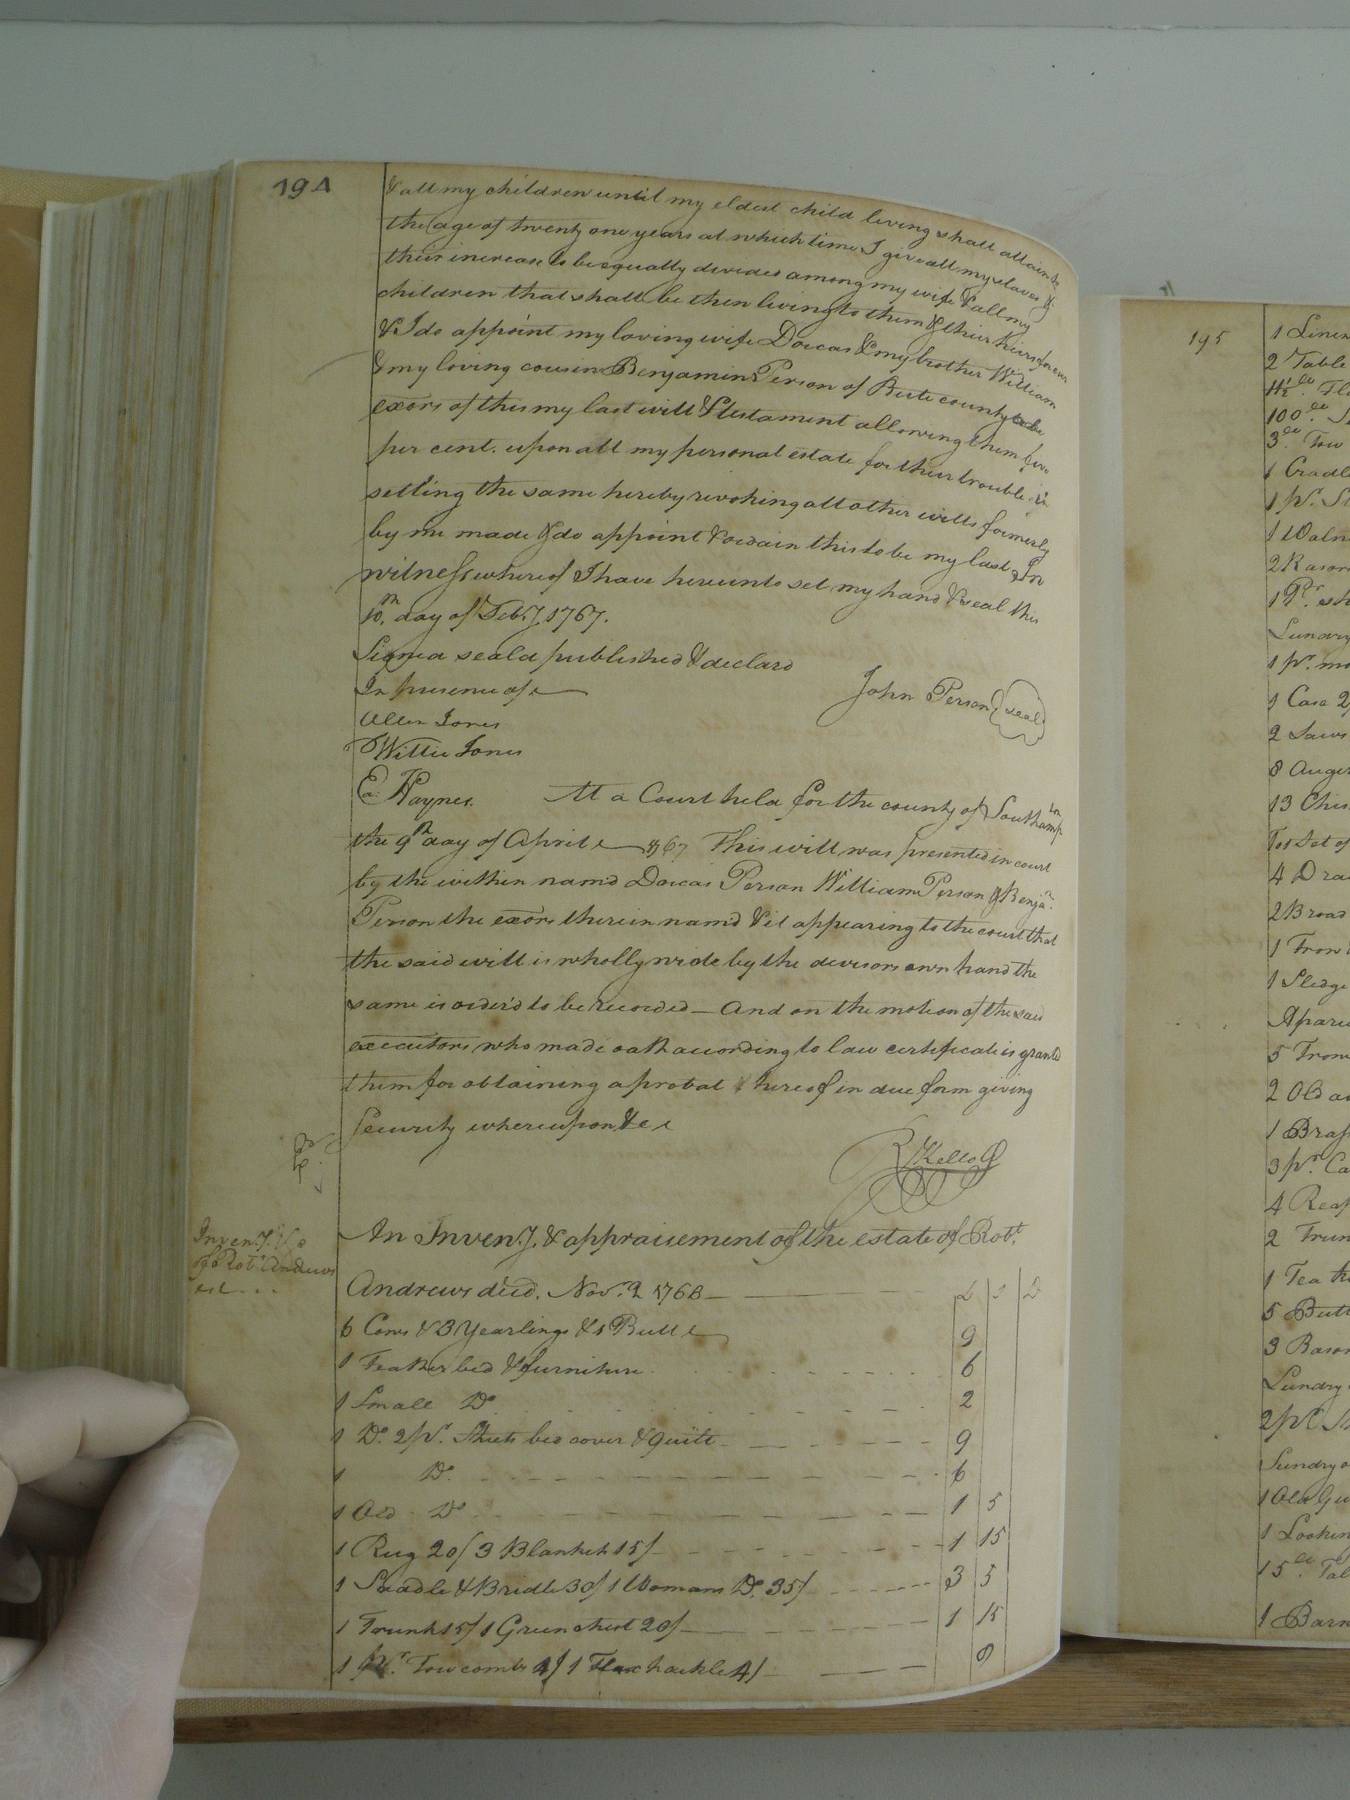 194
& all my children until my eldest child living shall attain to
the age of twenty one years at which time I give all my slaves &
their increase to be equally divided among my wife & all my
children that shall be then living to them & their heirs forever
& I do appoint my loving wife Dorcas & my brother William
& my loving cousin Benjamin Person of Bute county to be
exors of this my last will & testament allowing them five
per cent. upon all my personal estate for their trouble in
setling the same hereby revoking all other wills formerly
by me made & do appoint & ordain this to be my last In
witness whereof I have hereunto set my hand & seal this
10th. day of Feby. 1767.
Signed seald published & declard
In presence of
John Person seal
Allen Jones
Willie Jones
Ea. Haynes. At a Court held for the county of Southampton
the 9th day of April 1767 This will was presented in court
by the within namd Dorcas Person William Person & Benja.
Person the exors therein namd & it appearing to the court that
the said will is wholly wrote by the devisors own hand the
same is order'd to be recorded — And on the motion of the said
executors who made oath according to law certificate is granted
them for obtaining a probat thereof in due form giving
Security whereupon &c
R Kello
An Inveny. & appraisement of the estate of Robt.
Inveny. &c
of Robt. Andrews
est...
Andrews decd. Novr. 2 1768 — £ S D
6 Cows & 3 Yearlings & 1 Bull 9
1 Feather bed & furniture 6
1 Small Do. 2
1 Do. 2 pr. Sheets bed cover & quilt 9
1 Do. 6
1 Old Do. 1 5
1 Rug 20/ 3 Blankets 15/ 1 15
1 Saddle & Bridle 30/ 1 Womans Do. 35/ 3 5
1 Trunk 15/ 1 Green chest 20/ 1 15
1 pr. Tow combs 4/ 1 Flax hackle 4/ 8
195
1 Linen
2 Table
100
3 Tow
1 Cradle
1 pr.
2 Rasors
1 pr.
Sundry
1 pr.
1 Case
2 Saws
8 Auger
13 Chis
4 Dra
2 Broad
1 Frow
1 Sledge
A parce
5 Frow
2 Old
1 Brass
3 pr. Ca
4 Reap
2 Trun
1 Tea
5 Butt
3 Bason
Sundry
2 pr.
Sundry
1 Old Gu
1 Lookin
15
1 Barr